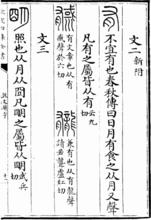 文二 新附
有 不宜有也春秋傳曰日月有食之从月又聲
凡有之屬皆从有 云九切
有文章也从有惑聲於六切
龓 兼有也从有龍聲讀若聾盧紅切
文三
朙 照也从月从囧凡朙之屬皆从朙 武兵切